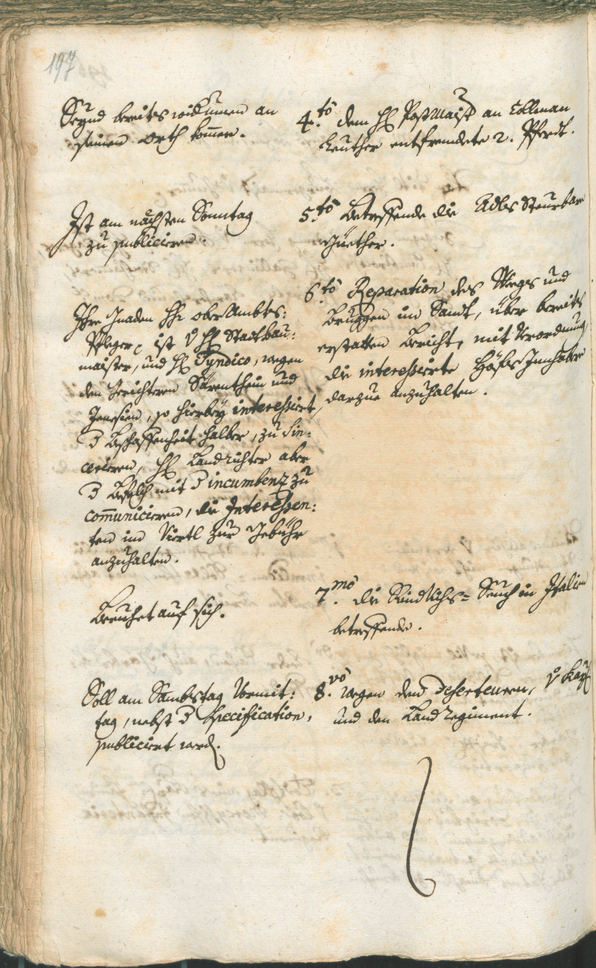 197
Seynd bereits widerumen an
seinen Orth kommen.
4.to dem H. PostMaistr an Collman
Leuther entfrembdete 2. Pferdt.
Ist am nächsten Sonntag
zu publicieren.
5.to Betreffende die Adls Steurbare
Güether.
Ihro Gnaden H. oberAmbts:
Pfleger, ist H. Stattbau:
maister, und H. Syndico, wegen
den Gerichtern Särenthein und
Jenesien, so hierbey interessiert,
Beschaffenheit halber, zu Sin:
cerieren, H. Landrichter aber
Befelch mit incumbenz zu
communicieren, die Interessen:
ten im Viertl zur Gebühr
anzuhalten.
6.to Reparation des Weegs und
Bruggen im Sandt, über bereits
erstatten Bericht, mit Verordnung
die interessierte Höfs Innhaber
darzue anzuhalten.
Beruhet auf sich.
7.mo die Rindvichs= Seuch in Italien
betreffende.
Soll am Sambstag Vormit:
tag, nebst Specification,
publiciert werd.
8.vo wegen den Deserteuren,
und den Landregiment.